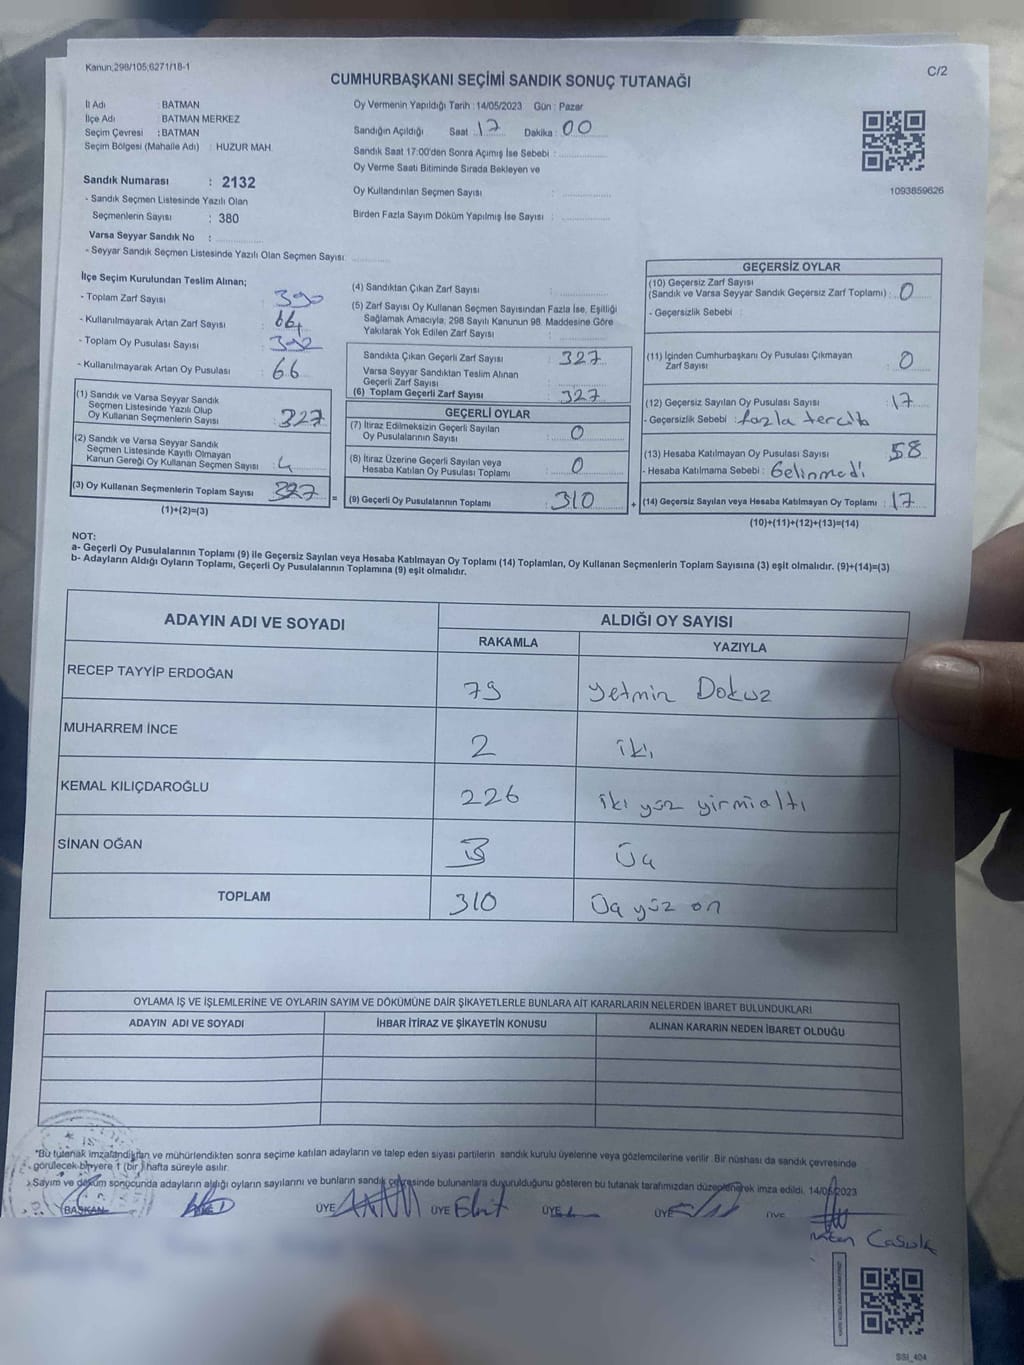 Kanun;298/105,6271/18-1
C/2
CUMHURBAŞKANI SEÇİMİ SANDIK SONUÇ TUTANAĞI
İl Adı : BATMAN
İlçe Adı : BATMAN MERKEZ
Seçim Çevresi : BATMAN
Seçim Bölgesi (Mahalle Adı) : HUZUR MAH.
Sandık Numarası : 2132
- Sandık Seçmen Listesinde Yazılı Olan
Seçmenlerin Sayısı : 380
Varsa Seyyar Sandık No :
- Seyyar Sandık Seçmen Listesinde Yazılı Olan Seçmen Sayısı:
Oy Vermenin Yapıldığı Tarih : 14/05/2023 Gün : Pazar
Sandığın Açıldığı Saat : 17 Dakika : 00
Sandık Saat 17:00'den Sonra Açımış İse Sebebi :
Oy Verme Saati Bitiminde Sırada Bekleyen ve
Oy Kullandırılan Seçmen Sayısı :
Birden Fazla Sayım Döküm Yapılmış İse Sayısı :
1093859626
İlçe Seçim Kurulundan Teslim Alınan;
- Toplam Zarf Sayısı : 390
- Kullanılmayarak Artan Zarf Sayısı :
- Toplam Oy Pusulası Sayısı :
- Kullanılmayarak Artan Oy Pusulası : 66
(1) Sandık ve Varsa Seyyar Sandık
Seçmen Listesinde Yazılı Olup
Oy Kullanan Seçmenlerin Sayısı : 327
(2) Sandık ve Varsa Seyyar Sandık
Seçmen Listesinde Kayıtlı Olmayan
Kanun Gereği Oy Kullanan Seçmen Sayısı : 4
(3) Oy Kullanan Seçmenlerin Toplam Sayısı : 327 =
(1)+(2)=(3)
(4) Sandıktan Çıkan Zarf Sayısı :
(5) Zarf Sayısı Oy Kullanan Seçmen Sayısından Fazla İse, Eşitliği
Sağlamak Amacıyla; 298 Sayılı Kanunun 98. Maddesine Göre
Yakılarak Yok Edilen Zarf Sayısı :
Sandıkta Çıkan Geçerli Zarf Sayısı : 327
Varsa Seyyar Sandıktan Teslim Alınan
Geçerli Zarf Sayısı :
(6) Toplam Geçerli Zarf Sayısı : 327
GEÇERLİ OYLAR
(7) İtiraz Edilmeksizin Geçerli Sayılan
Oy Pusulalarının Sayısı : 0
(8) İtiraz Üzerine Geçerli Sayılan veya
Hesaba Katılan Oy Pusulası Toplamı : 0
(9) Geçerli Oy Pusulalarının Toplamı : 310 +
GEÇERSİZ OYLAR
(10) Geçersiz Zarf Sayısı
(Sandık ve Varsa Seyyar Sandık Geçersiz Zarf Toplamı) : 0
- Geçersizlik Sebebi :
(11) İçinden Cumhurbaşkanı Oy Pusulası Çıkmayan
Zarf Sayısı : 0
(12) Geçersiz Sayılan Oy Pusulası Sayısı : 17
- Geçersizlik Sebebi : fazla tercih
(13) Hesaba Katılmayan Oy Pusulası Sayısı : 58
- Hesaba Katılmama Sebebi : Gelinmedi
(14) Geçersiz Sayılan veya Hesaba Katılmayan Oy Toplamı : 17
(10)+(11)+(12)+(13)=(14)
NOT:
a- Geçerli Oy Pusulalarının Toplamı (9) ile Geçersiz Sayılan veya Hesaba Katılmayan Oy Toplamı (14) Toplamları, Oy Kullanan Seçmenlerin Toplam Sayısına (3) eşit olmalıdır. (9)+(14)=(3)
b- Adayların Aldığı Oyların Toplamı, Geçerli Oy Pusulalarının Toplamına (9) eşit olmalıdır.
ADAYIN ADI VE SOYADI ALDIĞI OY SAYISI
RAKAMLA YAZIYLA
RECEP TAYYİP ERDOĞAN 79 Yetmin Dokuz
MUHARREM İNCE 2 iki
KEMAL KILIÇDAROĞLU 226 iki yüz yirmialtı
SİNAN OĞAN 3 Üç
TOPLAM 310 Üç yüz on
OYLAMA İŞ VE İŞLEMLERİNE VE OYLARIN SAYIM VE DÖKÜMÜNE DAİR ŞİKAYETLERLE BUNLARA AİT KARARLARIN NELERDEN İBARET BULUNDUKLARI
ADAYIN ADI VE SOYADI İHBAR İTİRAZ VE ŞİKAYETİN KONUSU ALINAN KARARIN NEDEN İBARET OLDUĞU
"Bu tutanak imzalandıktan ve mühürlendikten sonra seçime katılan adayların ve talep eden siyasi partilerin sandık kurulu üyelerine veya gözlemcilerine verilir. Bir nüshası da sandık çevresinde
görülecek bir yere 1 (bir) hafta süreyle asılır.
Sayım ve döküm sonucunda adayların aldığı oyların sayılarını ve bunların sandık çevresinde bulunanlara duyurulduğunu gösteren bu tutanak tarafımızdan düzenlenerek imza edildi. 14/05/2023
BAŞKAN ÜYE ÜYE ÜYE ÜYE ÜYE
SSI_404